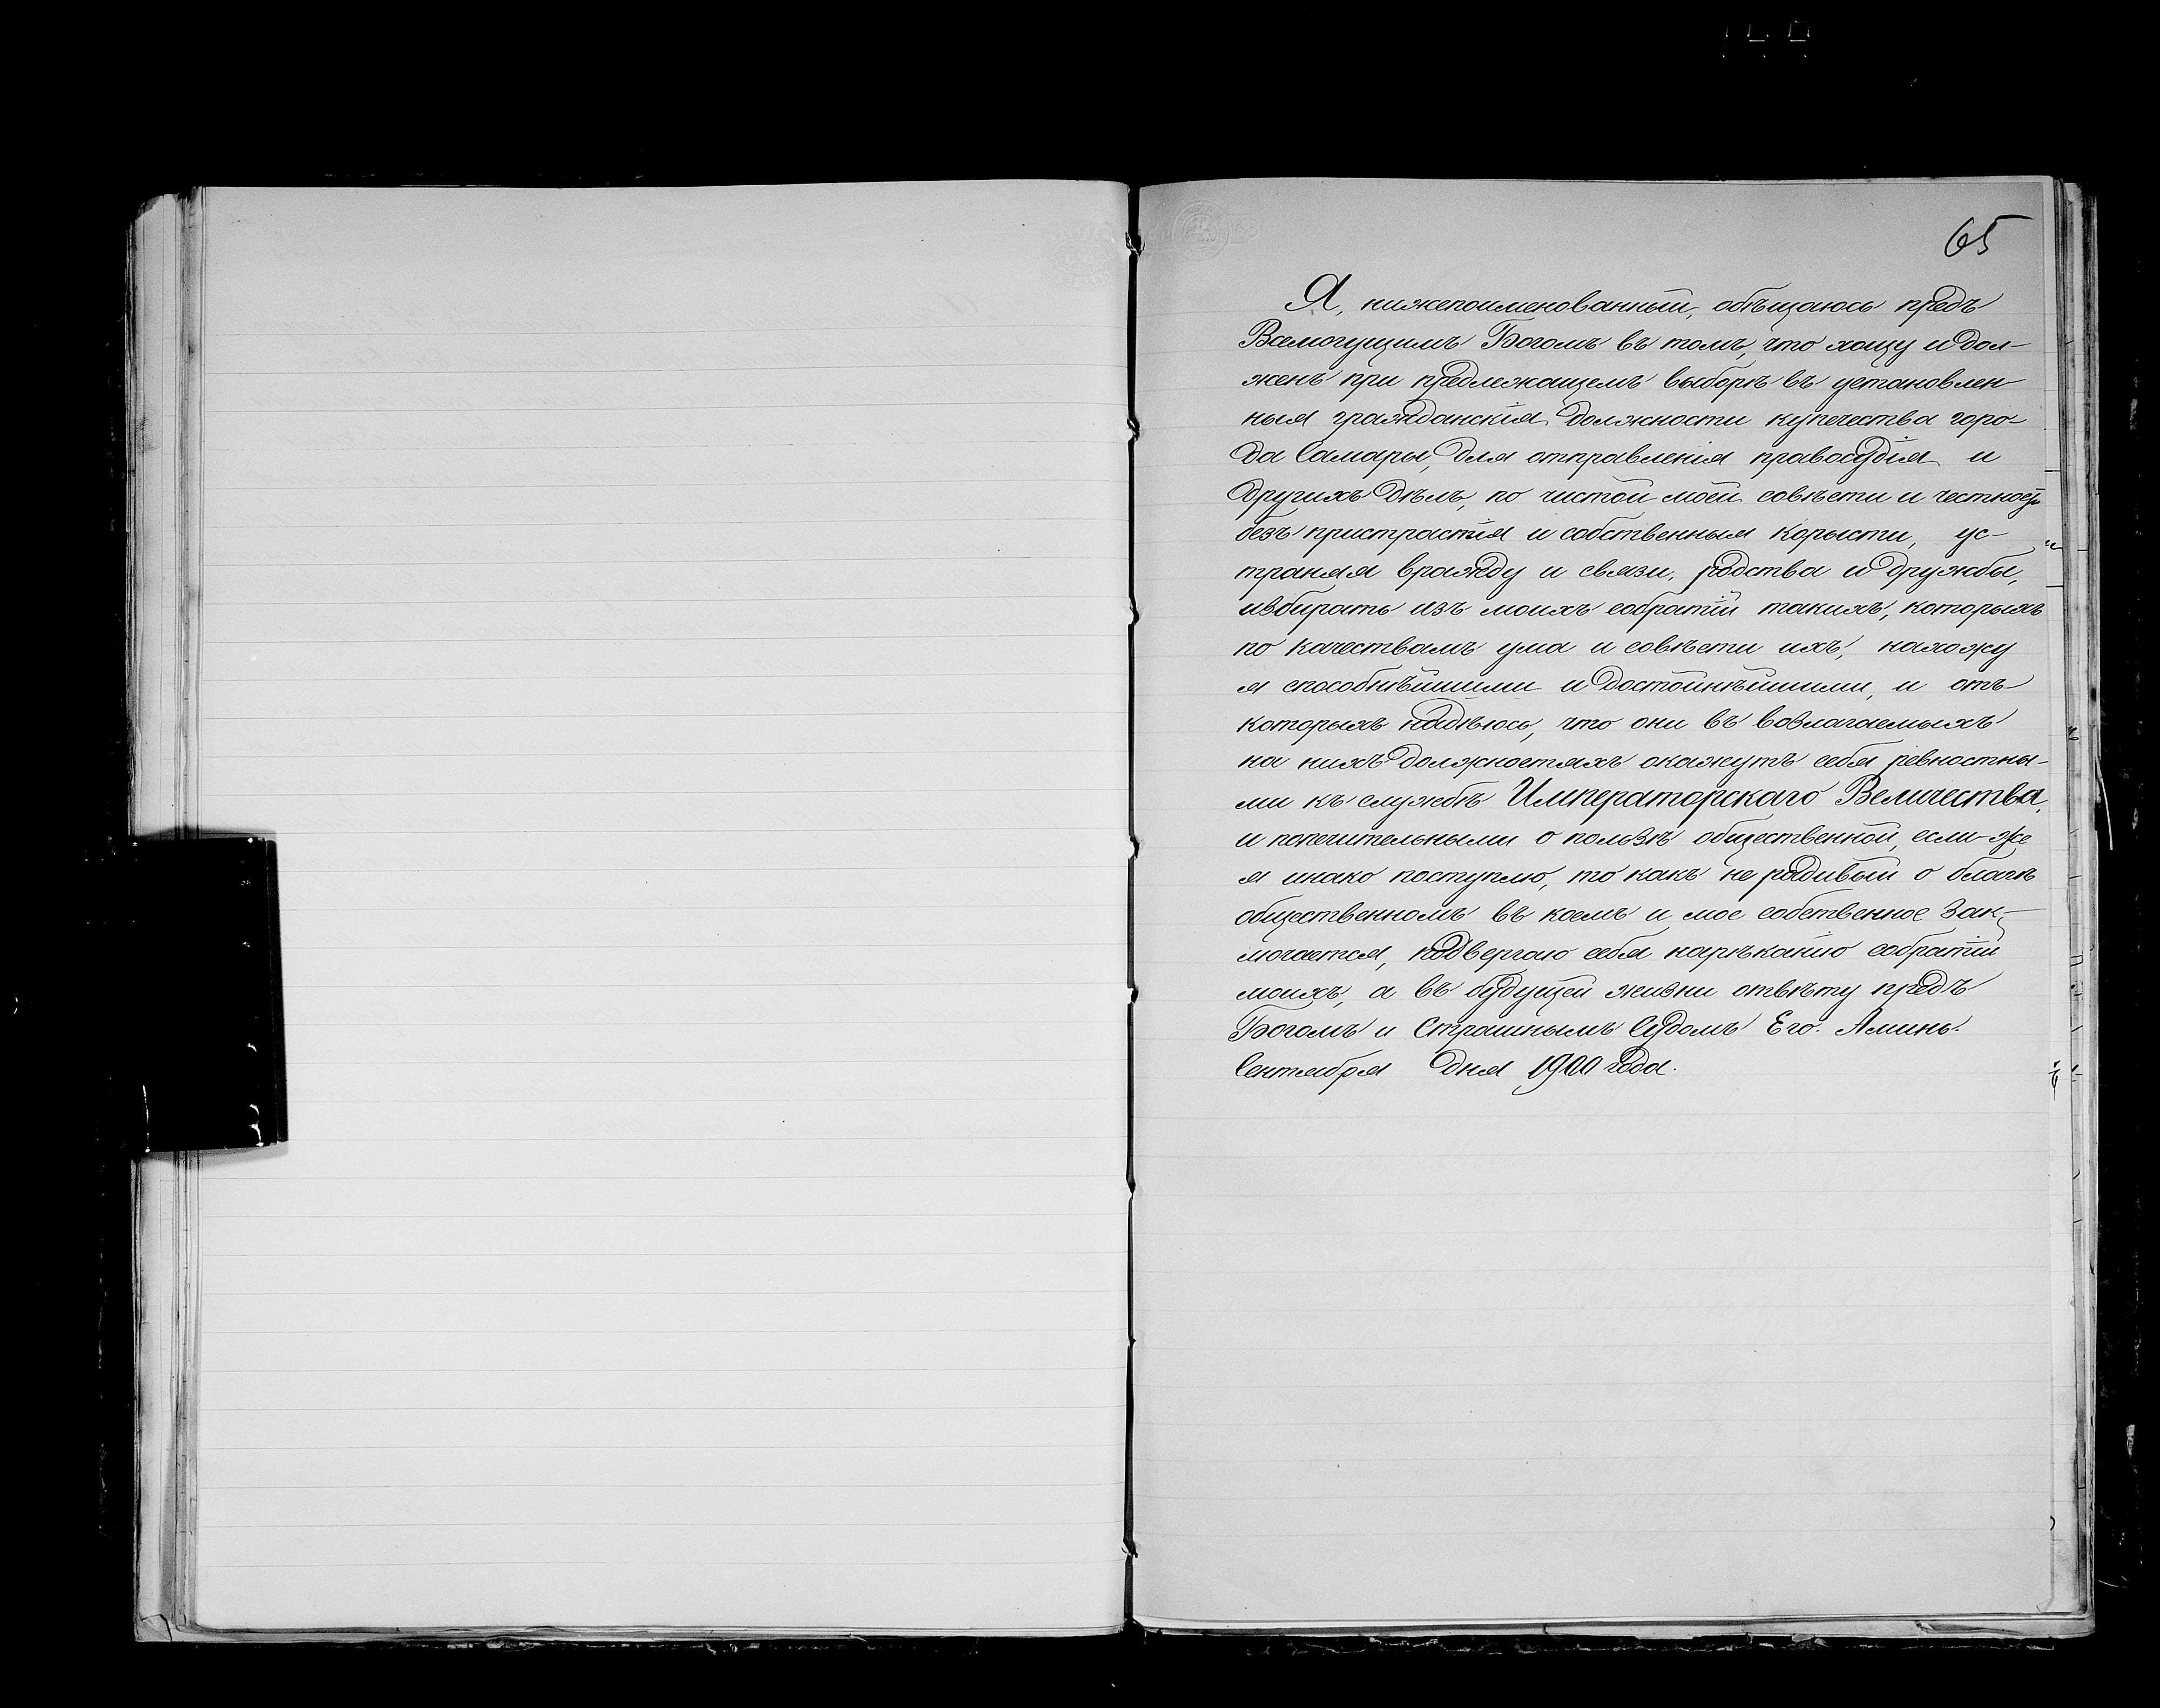 65
Я, нижепоименованный, обѣщаюсь предъ
Всемогущимъ Богомъ въ томъ, что хощу и дол-
женъ при предлежащемъ выборѣ въ установлен-
ныя гражданскія должности купечества горо-
да Самары, для отправленія правосудія и
другихъ дѣлъ, по чистой моей совѣсти и честности
безъ пристрастія и собственныя корысти, ус-
траняя вражду и связи, родства и дружбы,
избирать изъ моихъ собратій такихъ, которыхъ
по качествамъ ума и совѣсти ихъ, нахожу
я способнѣйшими и достойнѣйшими, и отъ
которыхъ надѣюсь, что они въ возлагаемыхъ
на нихъ должностяхъ окажутъ себя ревностны-
ми къ службѣ Императорскаго Величества,
и попечительными о пользѣ общественной, если-же
я инако поступлю, то какъ не радивый о благѣ
общественномъ въ коемъ и мое собственное зак-
лючается, подвергаю себя нарѣканію собратій
моихъ, а въ будущей жизни отвѣту предъ
Богомъ и Страшнымъ Судомъ Его. Аминь.
Сентября дня 1900 года.